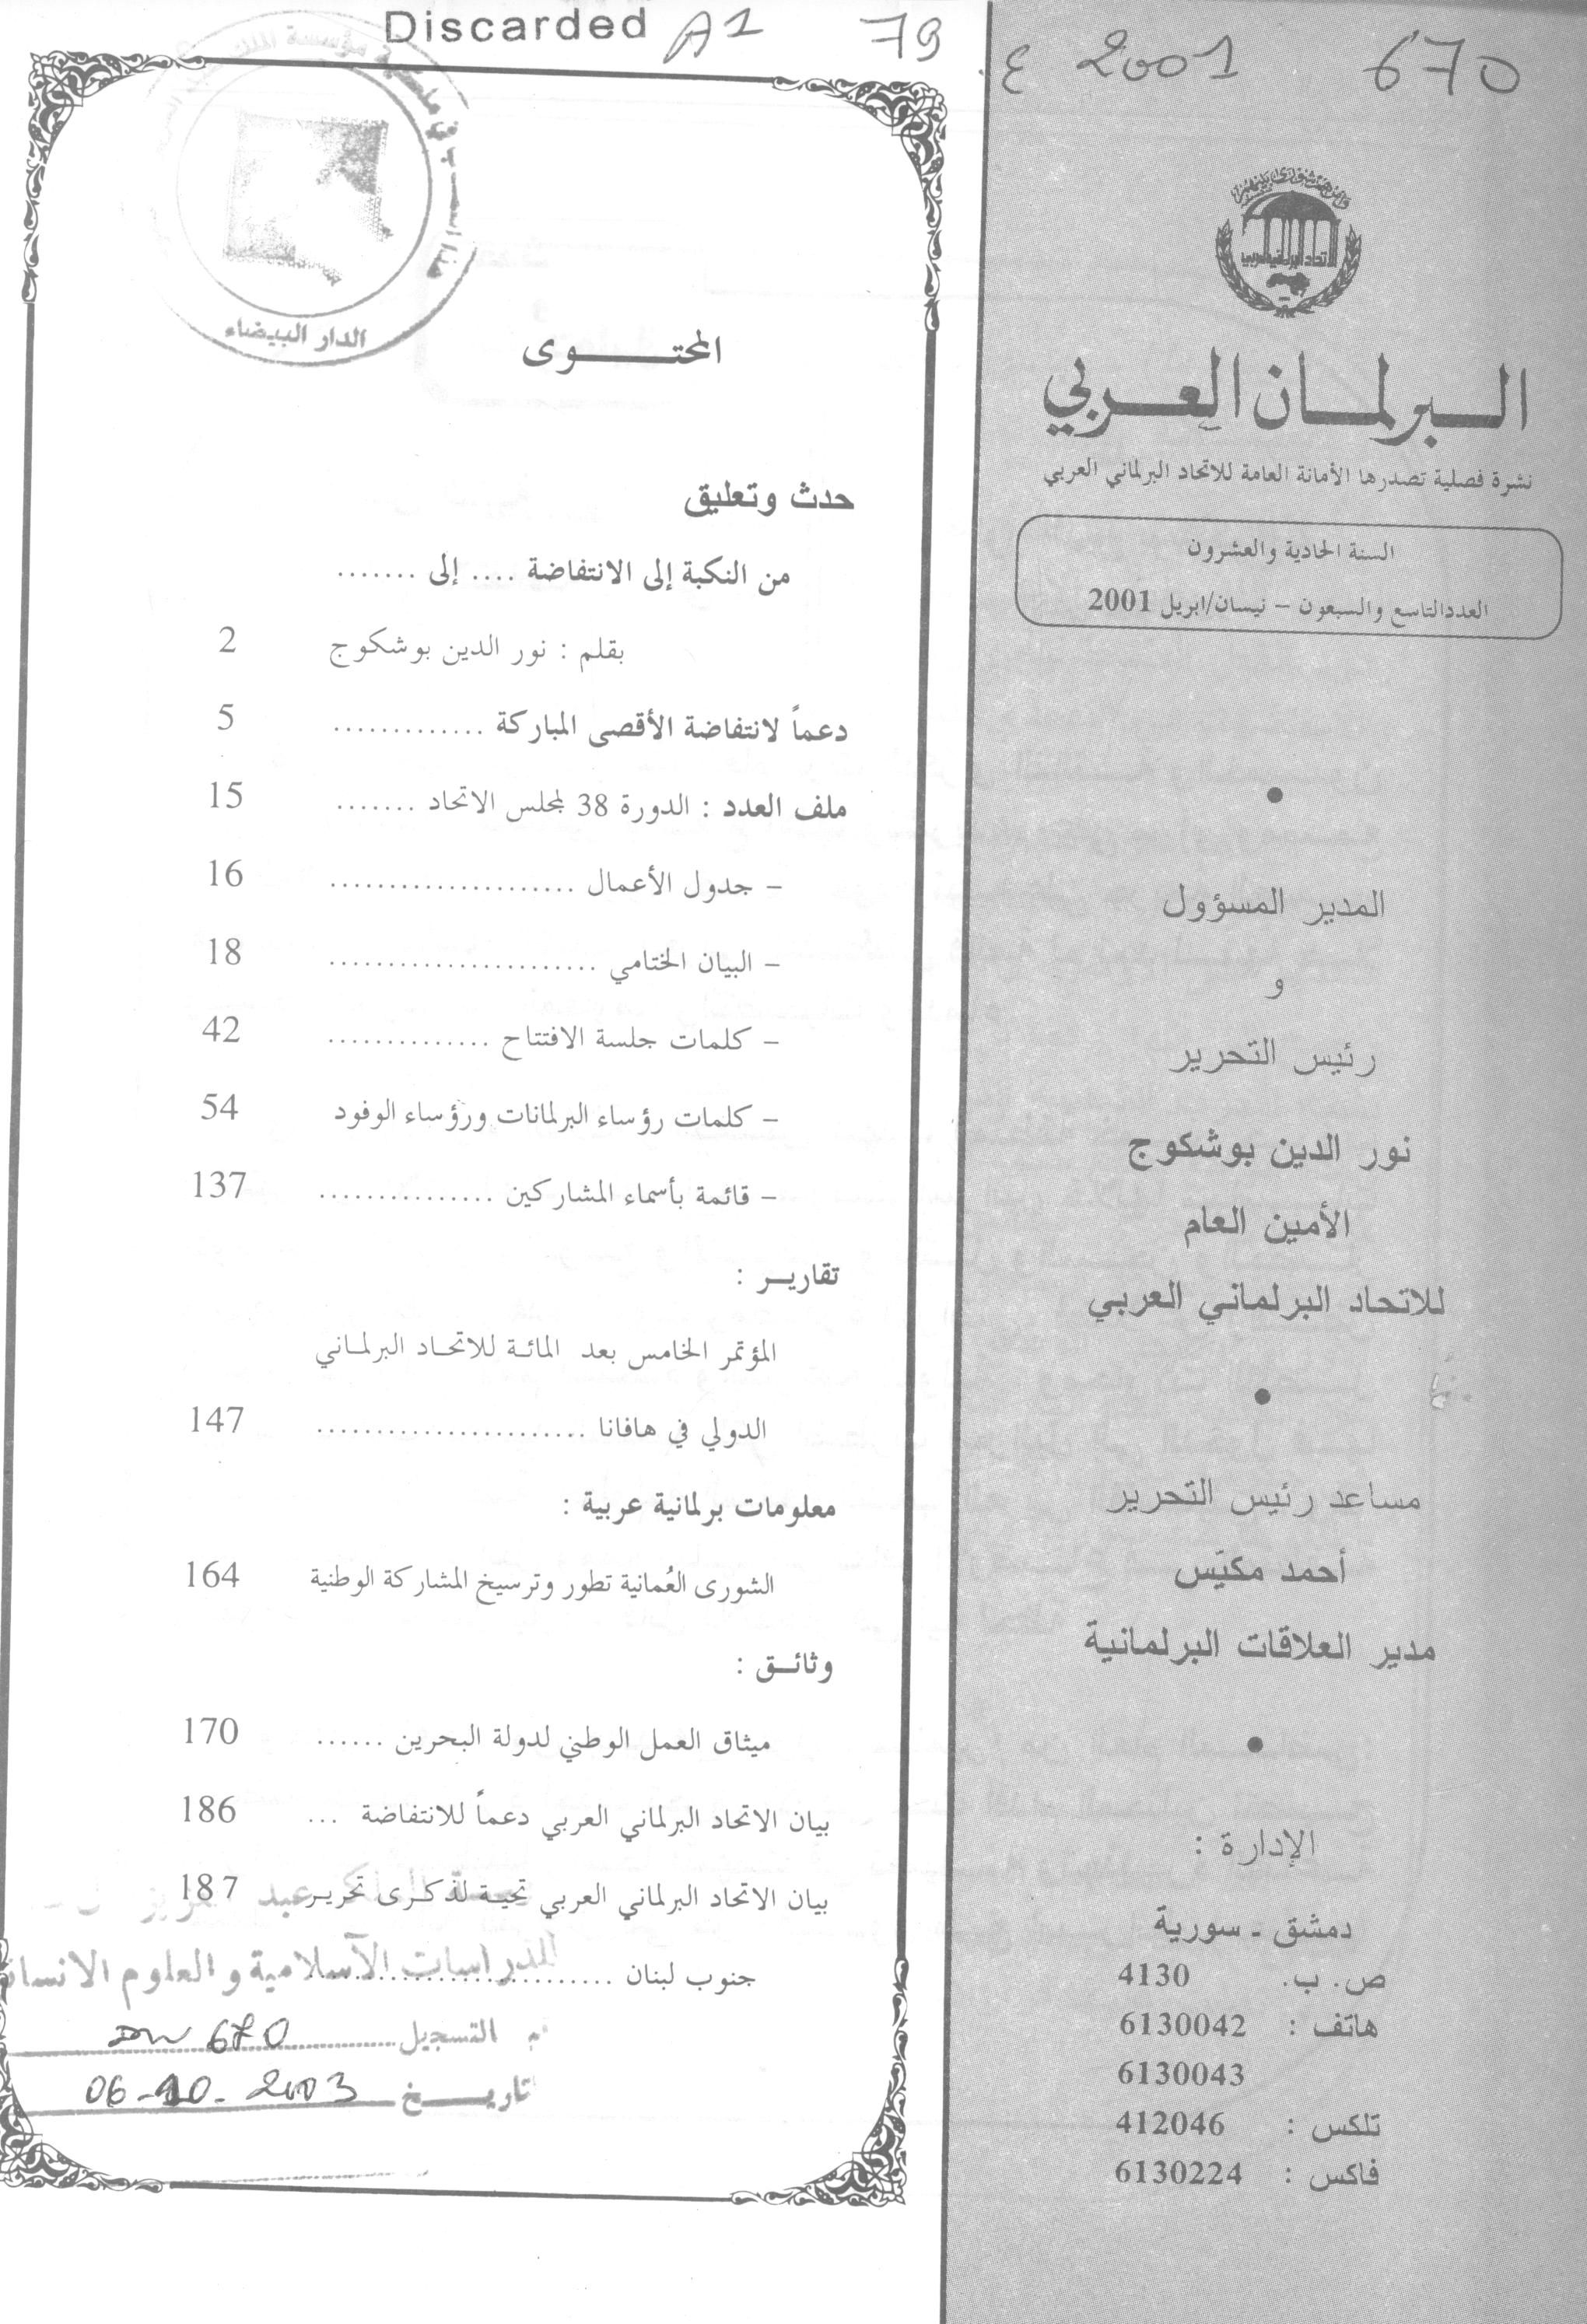 Discarded A1 79
ع 2001 670
الاتحاد البرلماني العربي
البرلمان العربي
نشرة فصلية تصدرها الأمانة العامة للاتحاد البرلماني العربي
السنة الحادية والعشرون
العدد التاسع والسبعون – نيسان/ابريل 2001
المدير المسؤول
و
رئيس التحرير
نور الدين بوشكوج
الأمين العام
للاتحاد البرلماني العربي
مساعد رئيس التحرير
أحمد مكيّس
مدير العلاقات البرلمانية
الإدارة :
دمشق ـ سورية
ص. ب. 4130
هاتف : 6130042
6130043
تلكس : 412046
فاكس : 6130224
الدار البيضاء
المحتـــــوى
حدث وتعليق
من النكبة إلى الانتفاضة .... إلى .......
بقلم : نور الدين بوشكوج 2
دعماً لانتفاضة الأقصى المباركة ............. 5
ملف العدد : الدورة 38 لمجلس الاتحاد ....... 15
– جدول الأعمال ..................... 16
– البيان الختامي ....................... 18
– كلمات جلسة الافتتاح .............. 42
– كلمات رؤساء البرلمانات ورؤساء الوفود 54
– قائمة بأسماء المشاركين ............... 137
تقاريـر :
المؤتمر الخامس بعد المائة للاتحاد البرلماني
الدولي في هافانا ....................... 147
معلومات برلمانية عربية :
الشورى العُمانية تطور وترسيخ المشاركة الوطنية 164
وثائـق :
ميثاق العمل الوطني لدولة البحرين ...... 170
بيان الاتحاد البرلماني العربي دعماً للانتفاضة ... 186
بيان الاتحاد البرلماني العربي تحيـة لذكـرى تحريـر 187
جنوب لبنان ..........................
للدراسات الآسلامية و العلوم الانسانية
التسجيل 670
تاريـــخ 06-10-2003